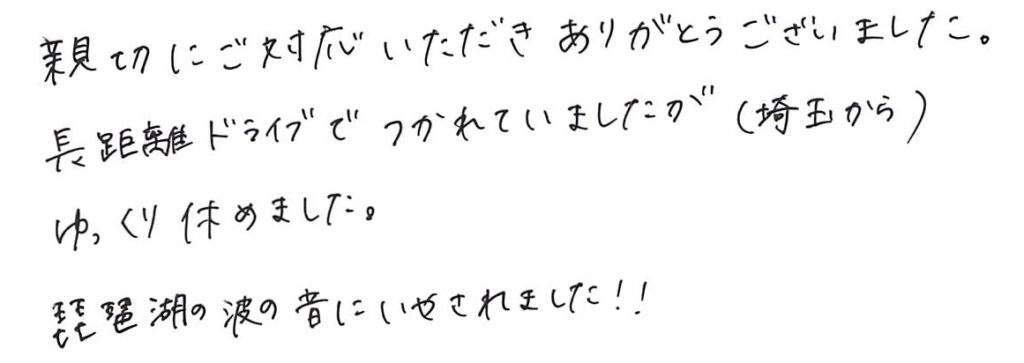 親切にご対応いただき ありがとうございました。
長距離ドライブで つかれていましたが (埼玉から)
ゆっくり休めました。
琵琶湖の波の音にいやされました!!